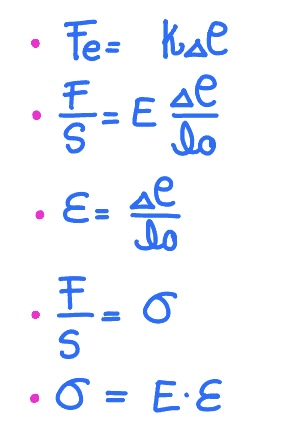 • Fe = kΔℓ
• F/S = E Δℓ/ℓo
• Ɛ = Δℓ/ℓo
• F/S = σ
• σ = E·Ɛ